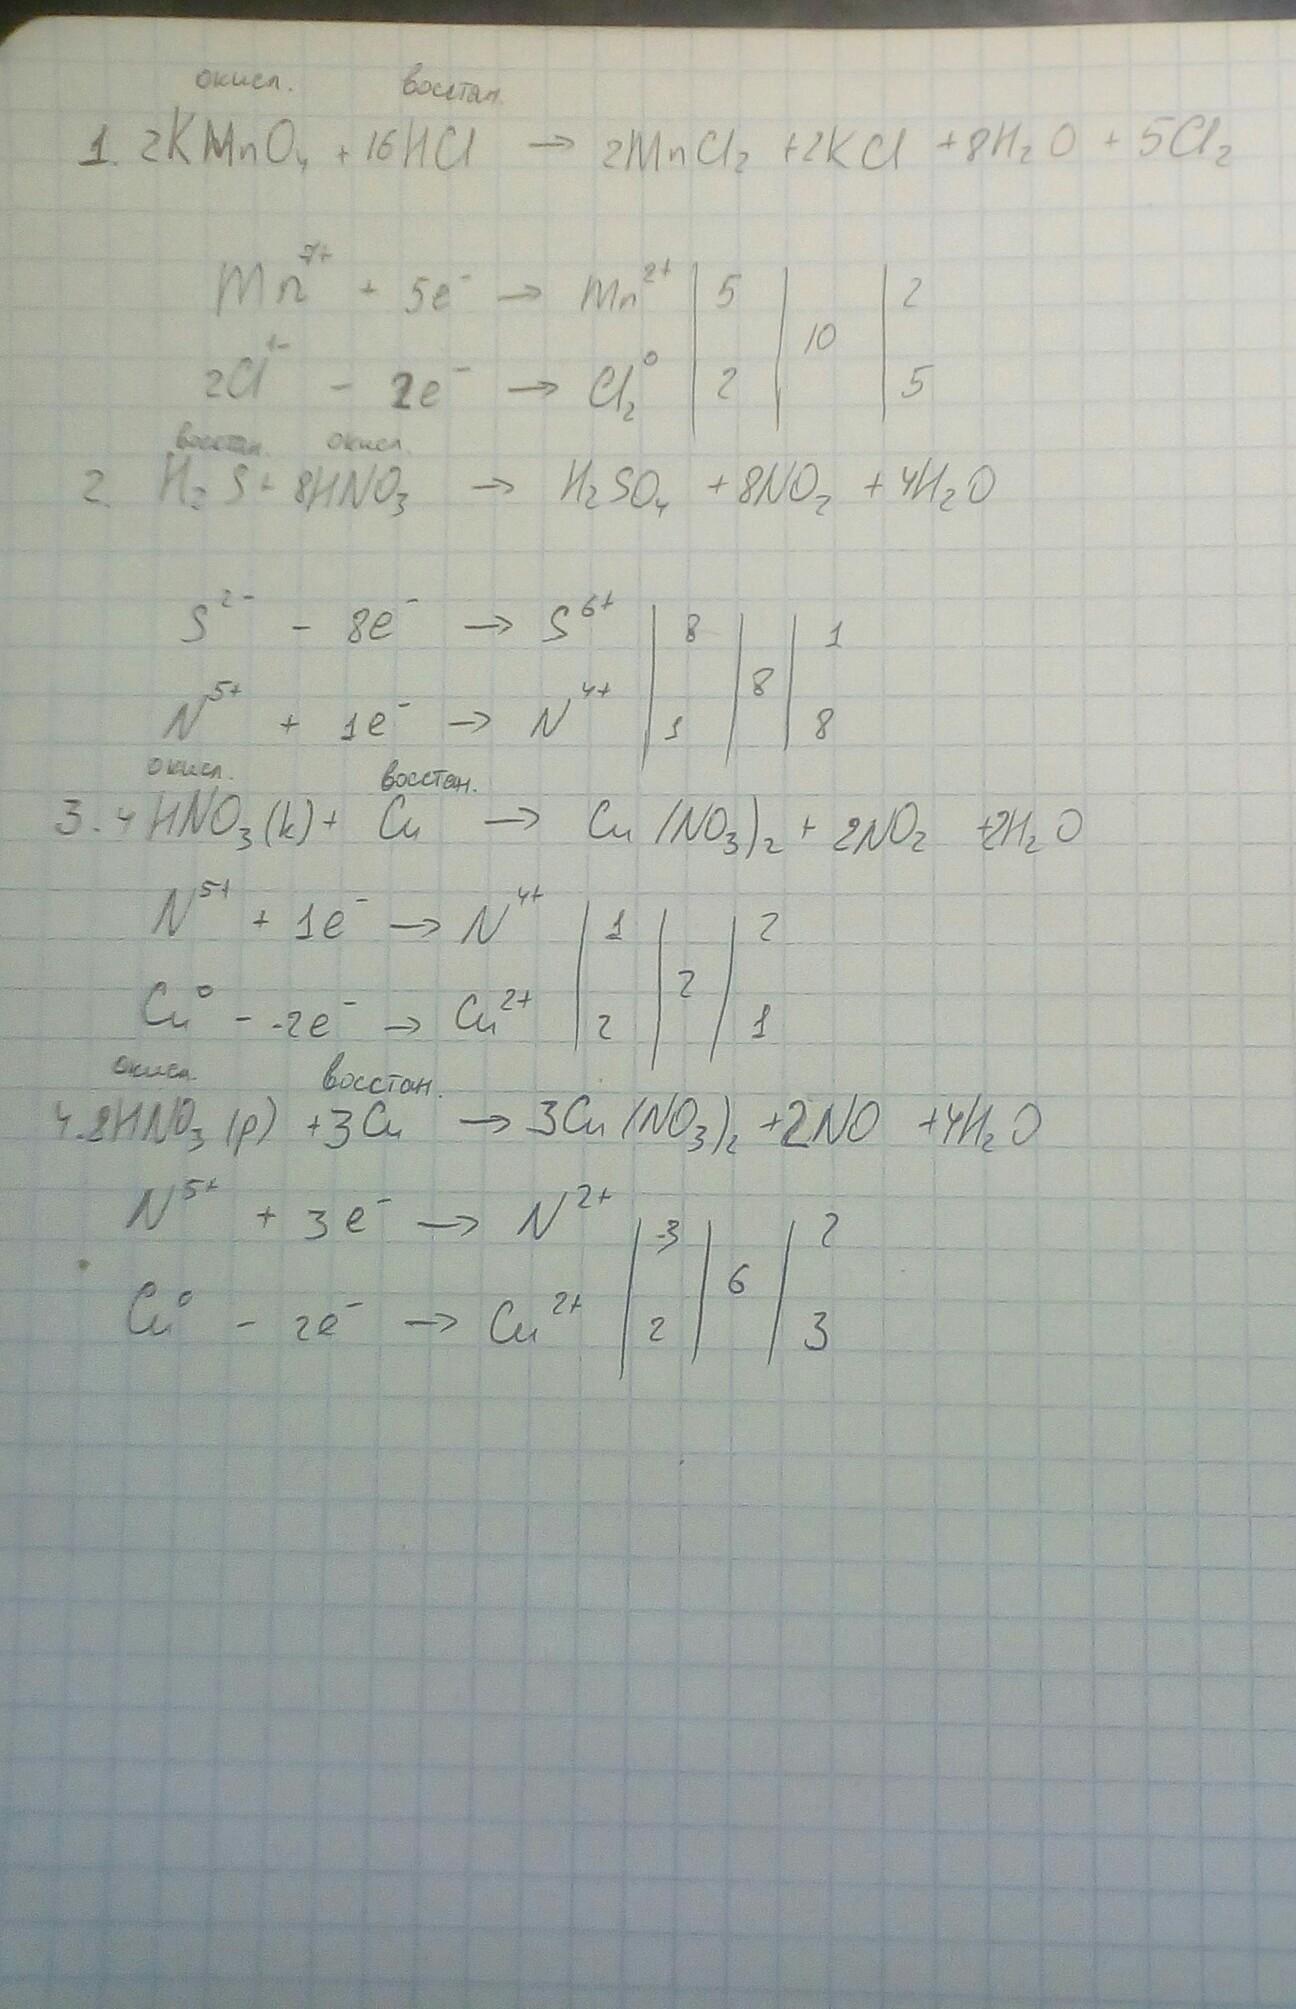 окисл. восстан.
1. 2KMnO₄ + 16HCl → 2MnCl₂ + 2KCl + 8H₂O + 5Cl₂
Mn⁷⁺ + 5e⁻ → Mn²⁺ | 5 | | 2
10
2Cl¹⁻ - 2e⁻ → Cl₂⁰ | 2 | | 5
восстан. окисл.
2. H₂S + 8HNO₃ → H₂SO₄ + 8NO₂ + 4H₂O
S²⁻ - 8e⁻ → S⁶⁺ | 8 | | 1
8
N⁵⁺ + 1e⁻ → N⁴⁺ | 1 | | 8
окисл. восстан.
3. 4HNO₃(k) + Cu → Cu(NO₃)₂ + 2NO₂ + 2H₂O
N⁵⁺ + 1e⁻ → N⁴⁺ | 1 | | 2
2
Cu⁰ - 2e⁻ → Cu²⁺ | 2 | | 1
окисл. восстан.
4. 8HNO₃(p) + 3Cu → 3Cu(NO₃)₂ + 2NO + 4H₂O
N⁵⁺ + 3e⁻ → N²⁺ | 3 | | 2
6
Cu⁰ - 2e⁻ → Cu²⁺ | 2 | | 3